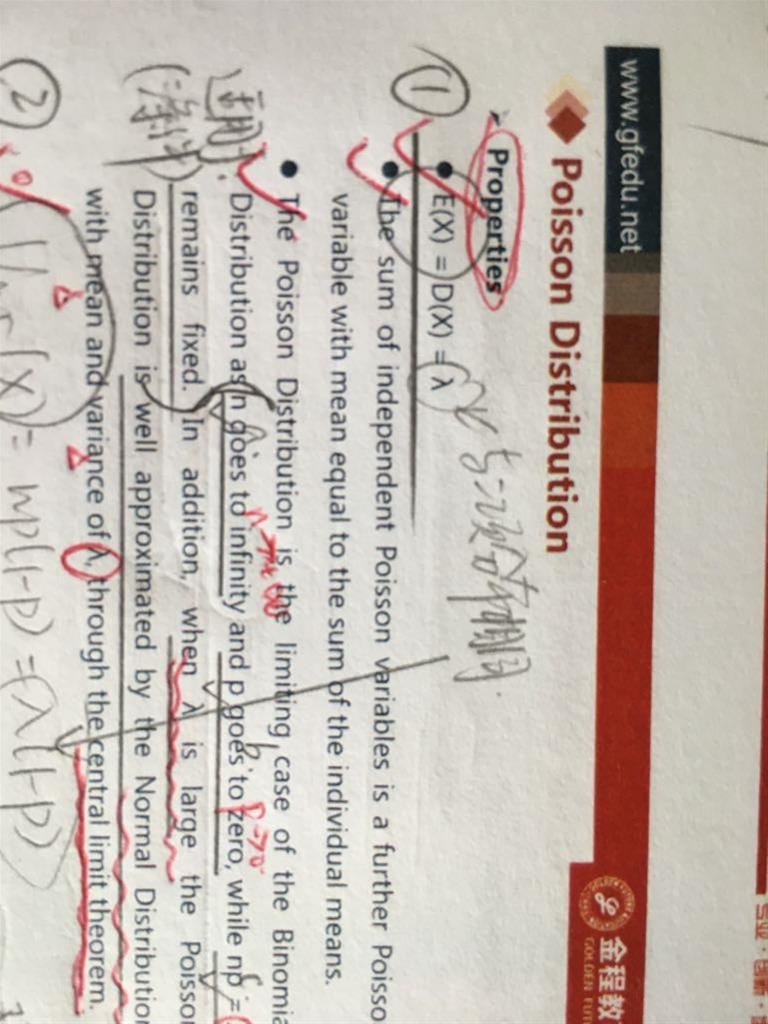 www.gfedu.net
金程教
GOLDEN FUT
Poisson Distribution
Properties
①
E(X) = D(X) = λ
The sum of independent Poisson variables is a further Poisso
variable with mean equal to the sum of the individual means.
The Poisson Distribution is the limiting case of the Binomia
n→+∞
Distribution as n goes to infinity and p goes to zero, while np =
p→0
remains fixed. In addition, when λ is large the Poisson
Distribution is well approximated by the Normal Distribution
with mean and variance of λ, through the central limit theorem.
②
Var(X) = np(1-p) = λ(1-p)